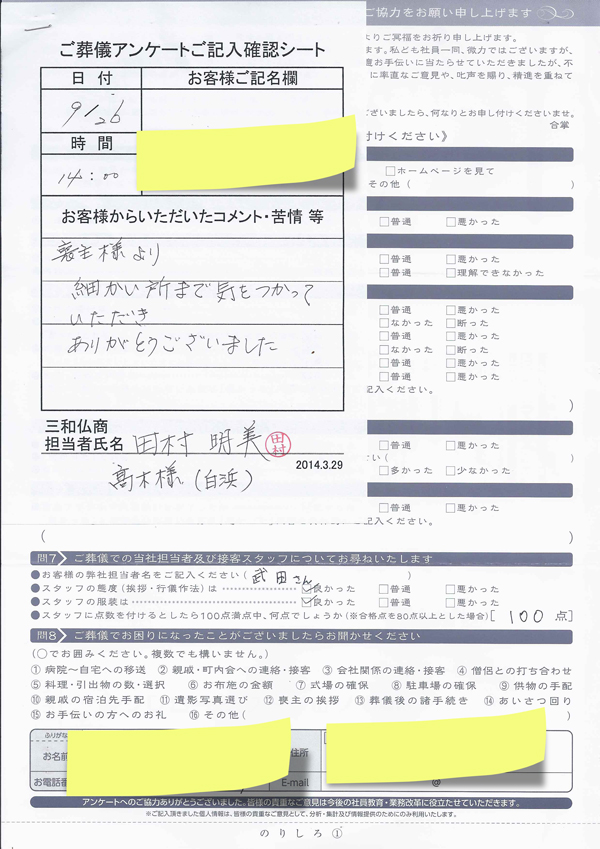 ご協力をお願い申し上げます
ご葬儀アンケートご記入確認シート
日付
お客様ご記名欄
9/26
時間
14:00
お客様からいただいたコメント・苦情 等
喪主様より
細かい所まで気をつかって
いただき
ありがとうございました.
三和仏商
担当者氏名 田村 明美 田村
2014.3.29
髙木様(白浜)
りご冥福をお祈り申し上げます。
ます。私ども社員一同、微力ではございますが、
お手伝いに当たらせていただきましたが、不
に率直なご意見や、叱声を賜り、精進を重ねて
ございましたら、何なりとお申し付けくださいませ。
合掌
付けください》
□ホームページを見て
その他(　)
□普通 □悪かった
□普通 □悪かった
□普通 □理解できなかった
□普通 □悪かった
□なかった □断った
□普通 □悪かった
□なかった □断った
□普通 □悪かった
□普通 □悪かった
記入ください。
)
□普通 □悪かった
(
□多かった □少なかった
□普通 □悪かった
ご記入ください。
(　)
問7 ご葬儀での当社担当者及び接客スタッフについてお尋ねいたします
●お客様の弊社担当者名をご記入ください(武田さん)
●スタッフの態度(挨拶・行儀作法)は ☑良かった □普通 □悪かった
●スタッフの服装は ☑良かった □普通 □悪かった
●スタッフに点数を付けるとしたら100点満点中、何点でしょうか(※合格点を80点以上とした場合)[100 点]
問8 ご葬儀でお困りになったことがございましたらお聞かせください
(○でお囲みください。複数でも構いません。)
①病院〜自宅への移送 ②親戚・町内会への連絡・接客 ③会社関係の連絡・接客 ④僧侶との打ち合わせ
⑤料理・引出物の数・選択 ⑥お布施の金額 ⑦式場の確保 ⑧駐車場の確保 ⑨供物の手配
⑩親戚の宿泊先手配 ⑪遺影写真選び ⑫喪主の挨拶 ⑬葬儀後の諸手続き ⑭あいさつ回り
⑮お手伝いの方へのお礼 ⑯その他(　)
ふりがな
お名前
住所
お電話番
E-mail
@
アンケートへのご協力ありがとうございました。皆様の貴重なご意見は今後の社員教育・業務改革に役立たせていただきます。
※ご記入頂きました個人情報は、皆様の貴重なご意見として、分析・集計及び情報提供のためにのみ利用いたします。
のりしろ①